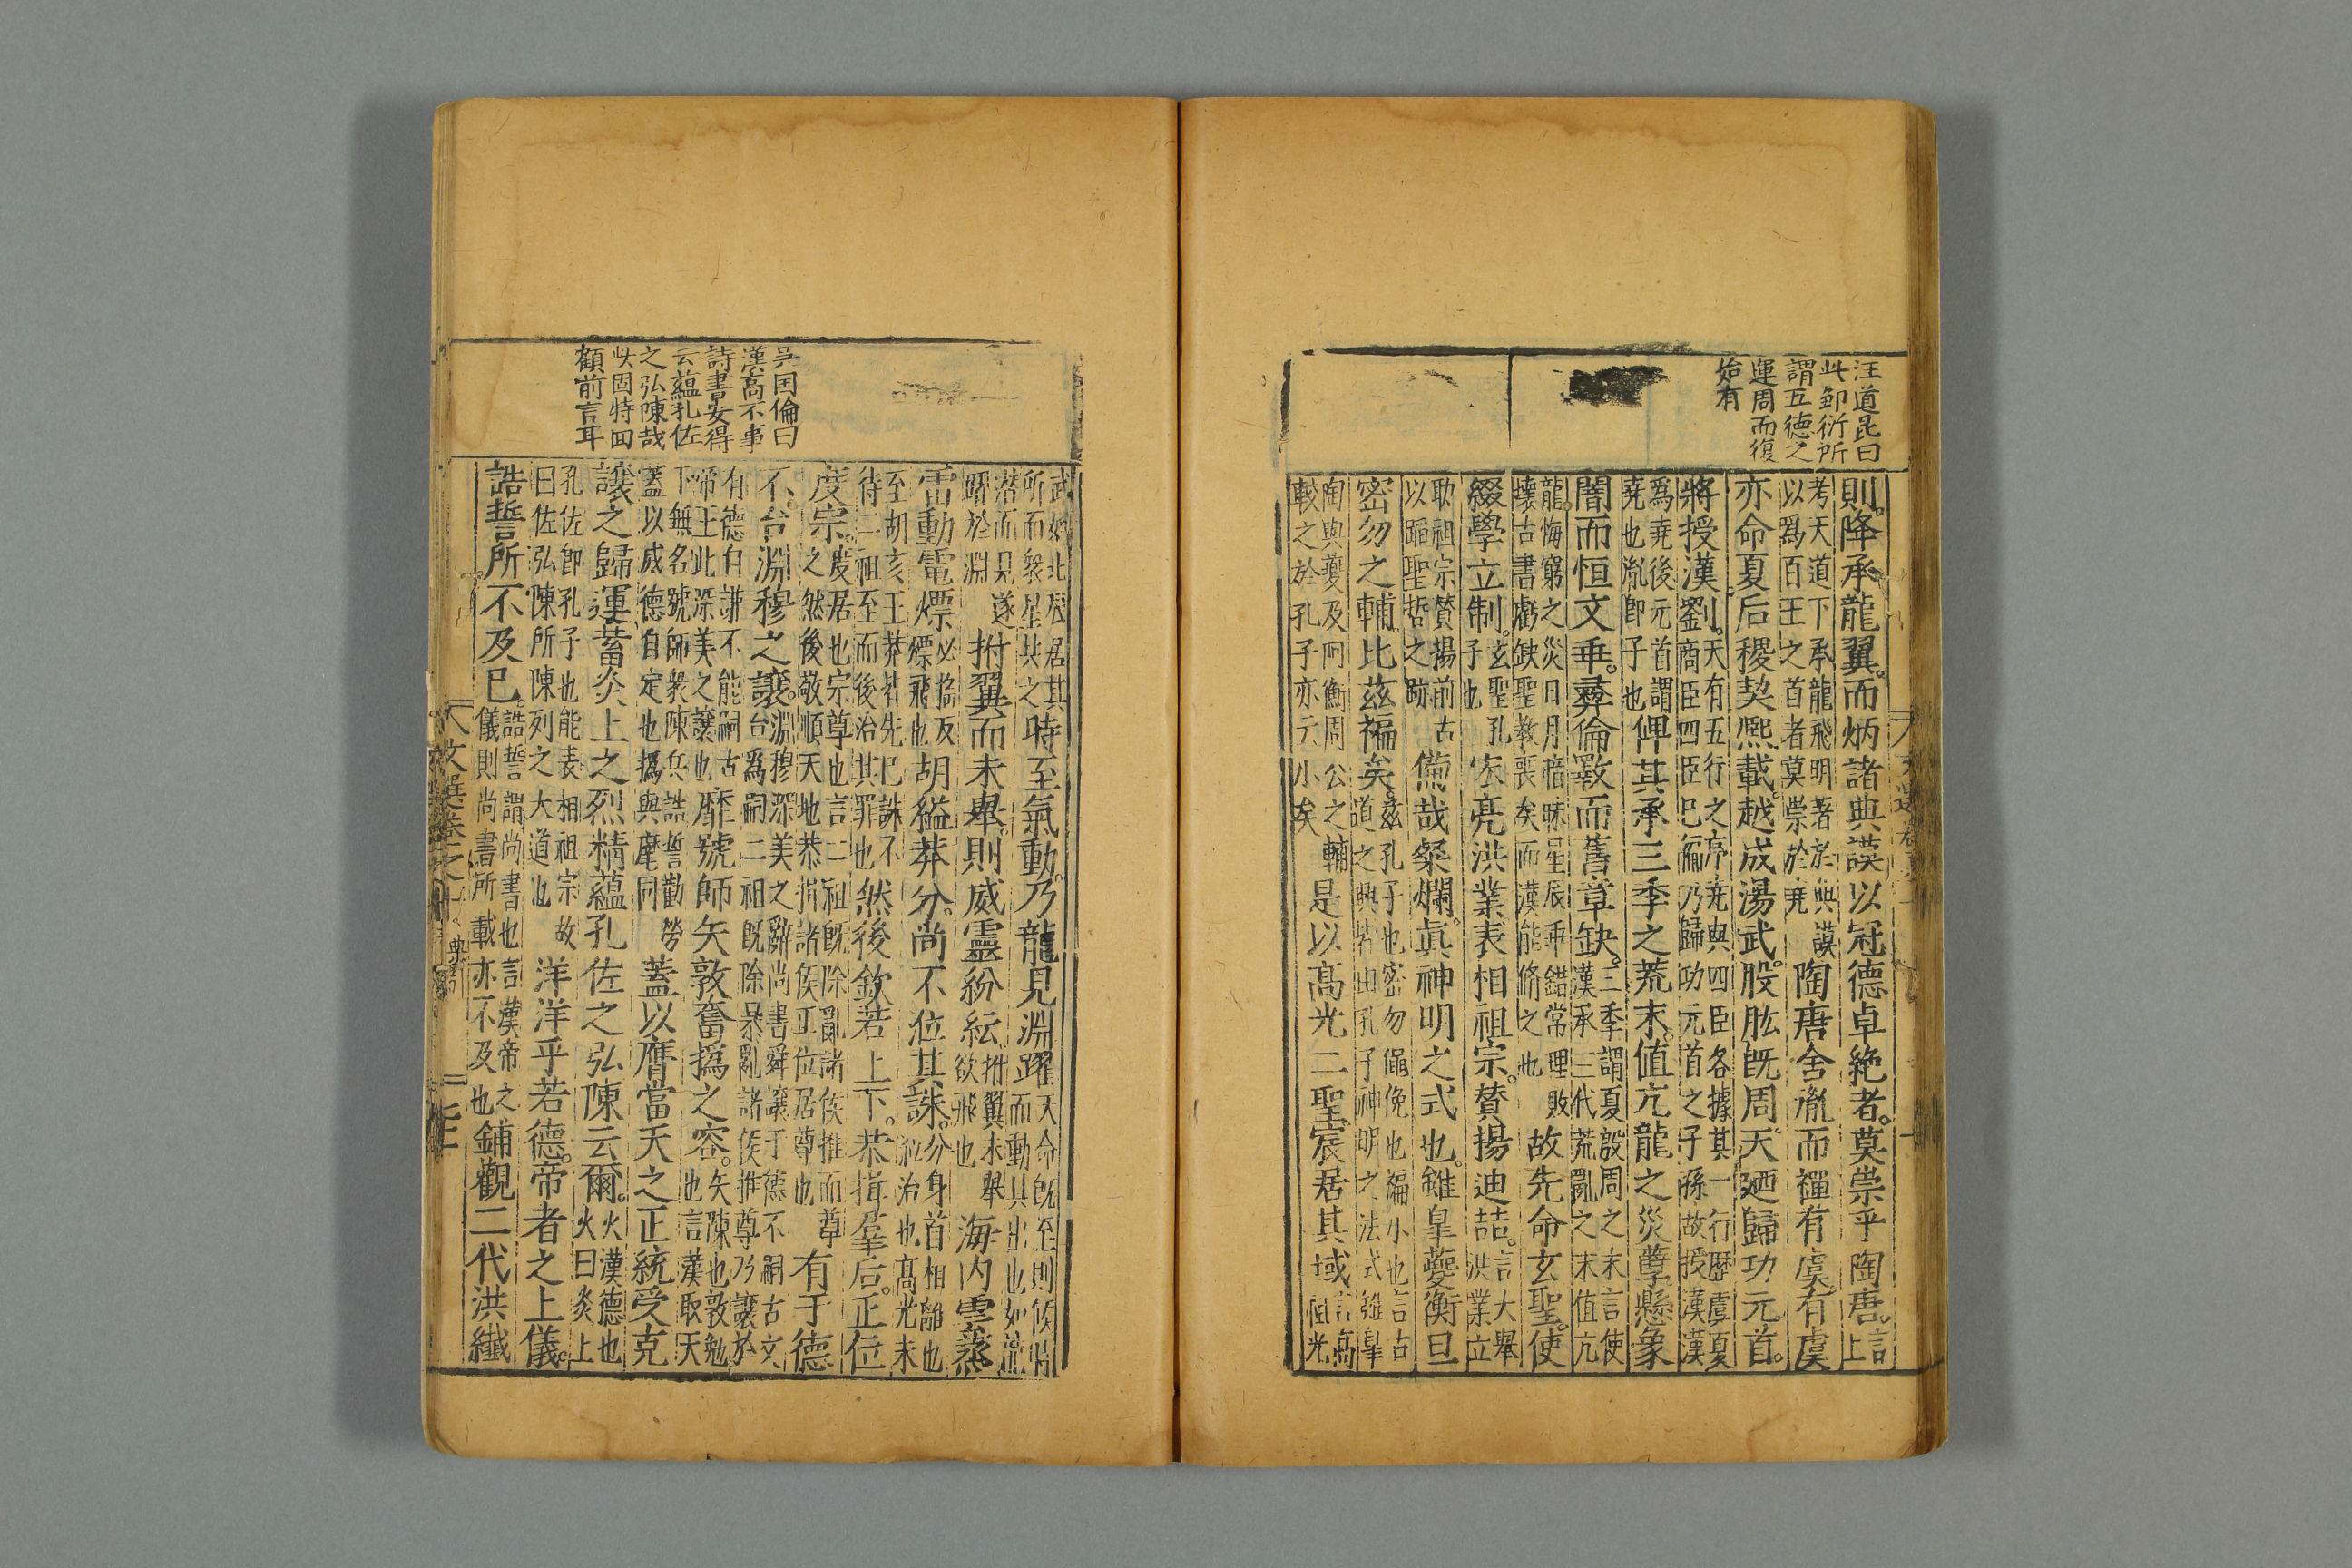 汪道昆曰
此鄒衍所
謂五德之
運周而復
始有
則降承龍翼而炳諸典謨以冠德卓絶者莫崇乎陶唐言上
考天道下承龍飛明著於典謨以爲百王之首者莫崇於堯陶唐舍胤而禪有虞有虞
亦命夏后稷契熙載越成湯武股肱既周天廼歸功元首
將授漢劉天有五行之序堯與四臣各據其一行歷虞夏商臣四臣已徧乃歸功元首之子孫故授漢漢
爲堯後元首謂堯也胤即子也俾其承三季之荒末值亢龍之災孽懸象
闇而恒文乖彛倫斁而舊章缺三季謂夏殷周之末言使漢承三代荒亂之末值亢
龍悔窮之災日月瘖昧星辰乖錯常理敗壞古書虧缺聖教喪矣而漢能脩之也故先命玄聖使
綴學立制玄聖孔子也宏亮洪業表相祖宗賛揚迪喆言大舉洪業立
取祖宗賛揚前古以蹈聖哲之跡備哉粲爛眞神明之式也雖皐夔衡旦
密勿之輔比茲褊矣茲孔子也密勿僶俛也褊小也言古道之興若由孔子神明之法式雖皐
陶與夔及阿衡周公之輔較之於孔子亦云小矣是以高光二聖宸居其域言高祖光
吳国倫曰
漢高不事
詩書安得
云蘊孔佐
之弘陳哉
此固特回
顧前言耳
武如北辰居其所而衆星共之時至氣動乃龍見淵躍天命既至則候時而動其出也如龍
潜而見遂躍於淵拊翼而未舉則威靈紛紜拊翼未舉欲飛也海内雲蒸
雷動電熛熛必搖反熛飛也胡縊莽分尚不位其誅分身首相離也㳂治也高光未
至胡亥王莽皆先已誅不待二祖至而後治其罪也然後欽若上下恭揖羣后正位
度宗度居也宗尊也言二祖既除亂諸侯推而尊之然後敬順天地恭揖諸侯正位居尊也有于德
不台淵穆之讓淵穆深美之辭尚書舜讓于德不嗣古文台爲嗣二祖既除暴亂諸侯推尊乃讓於
有德自謙不能嗣古帝王此深美之讓也靡號師矢敦奮撝之容矢陳也敦勉也言漢取天
下無名號師衆陳兵誥誓勸勞蓋以威德自定也撝與麾同蓋以膺當天之正統受克
讓之歸運蓄炎上之烈精蘊孔佐之弘陳云爾火漢德也火曰炎上
孔佐即孔子也能表相祖宗故曰佐弘陳所陳列之大道也洋洋乎若德帝者之上儀
誥誓所不及已誥誓謂尚書也言漢帝之儀則尚書所載亦不及也鋪觀二代洪纖
文選卷之